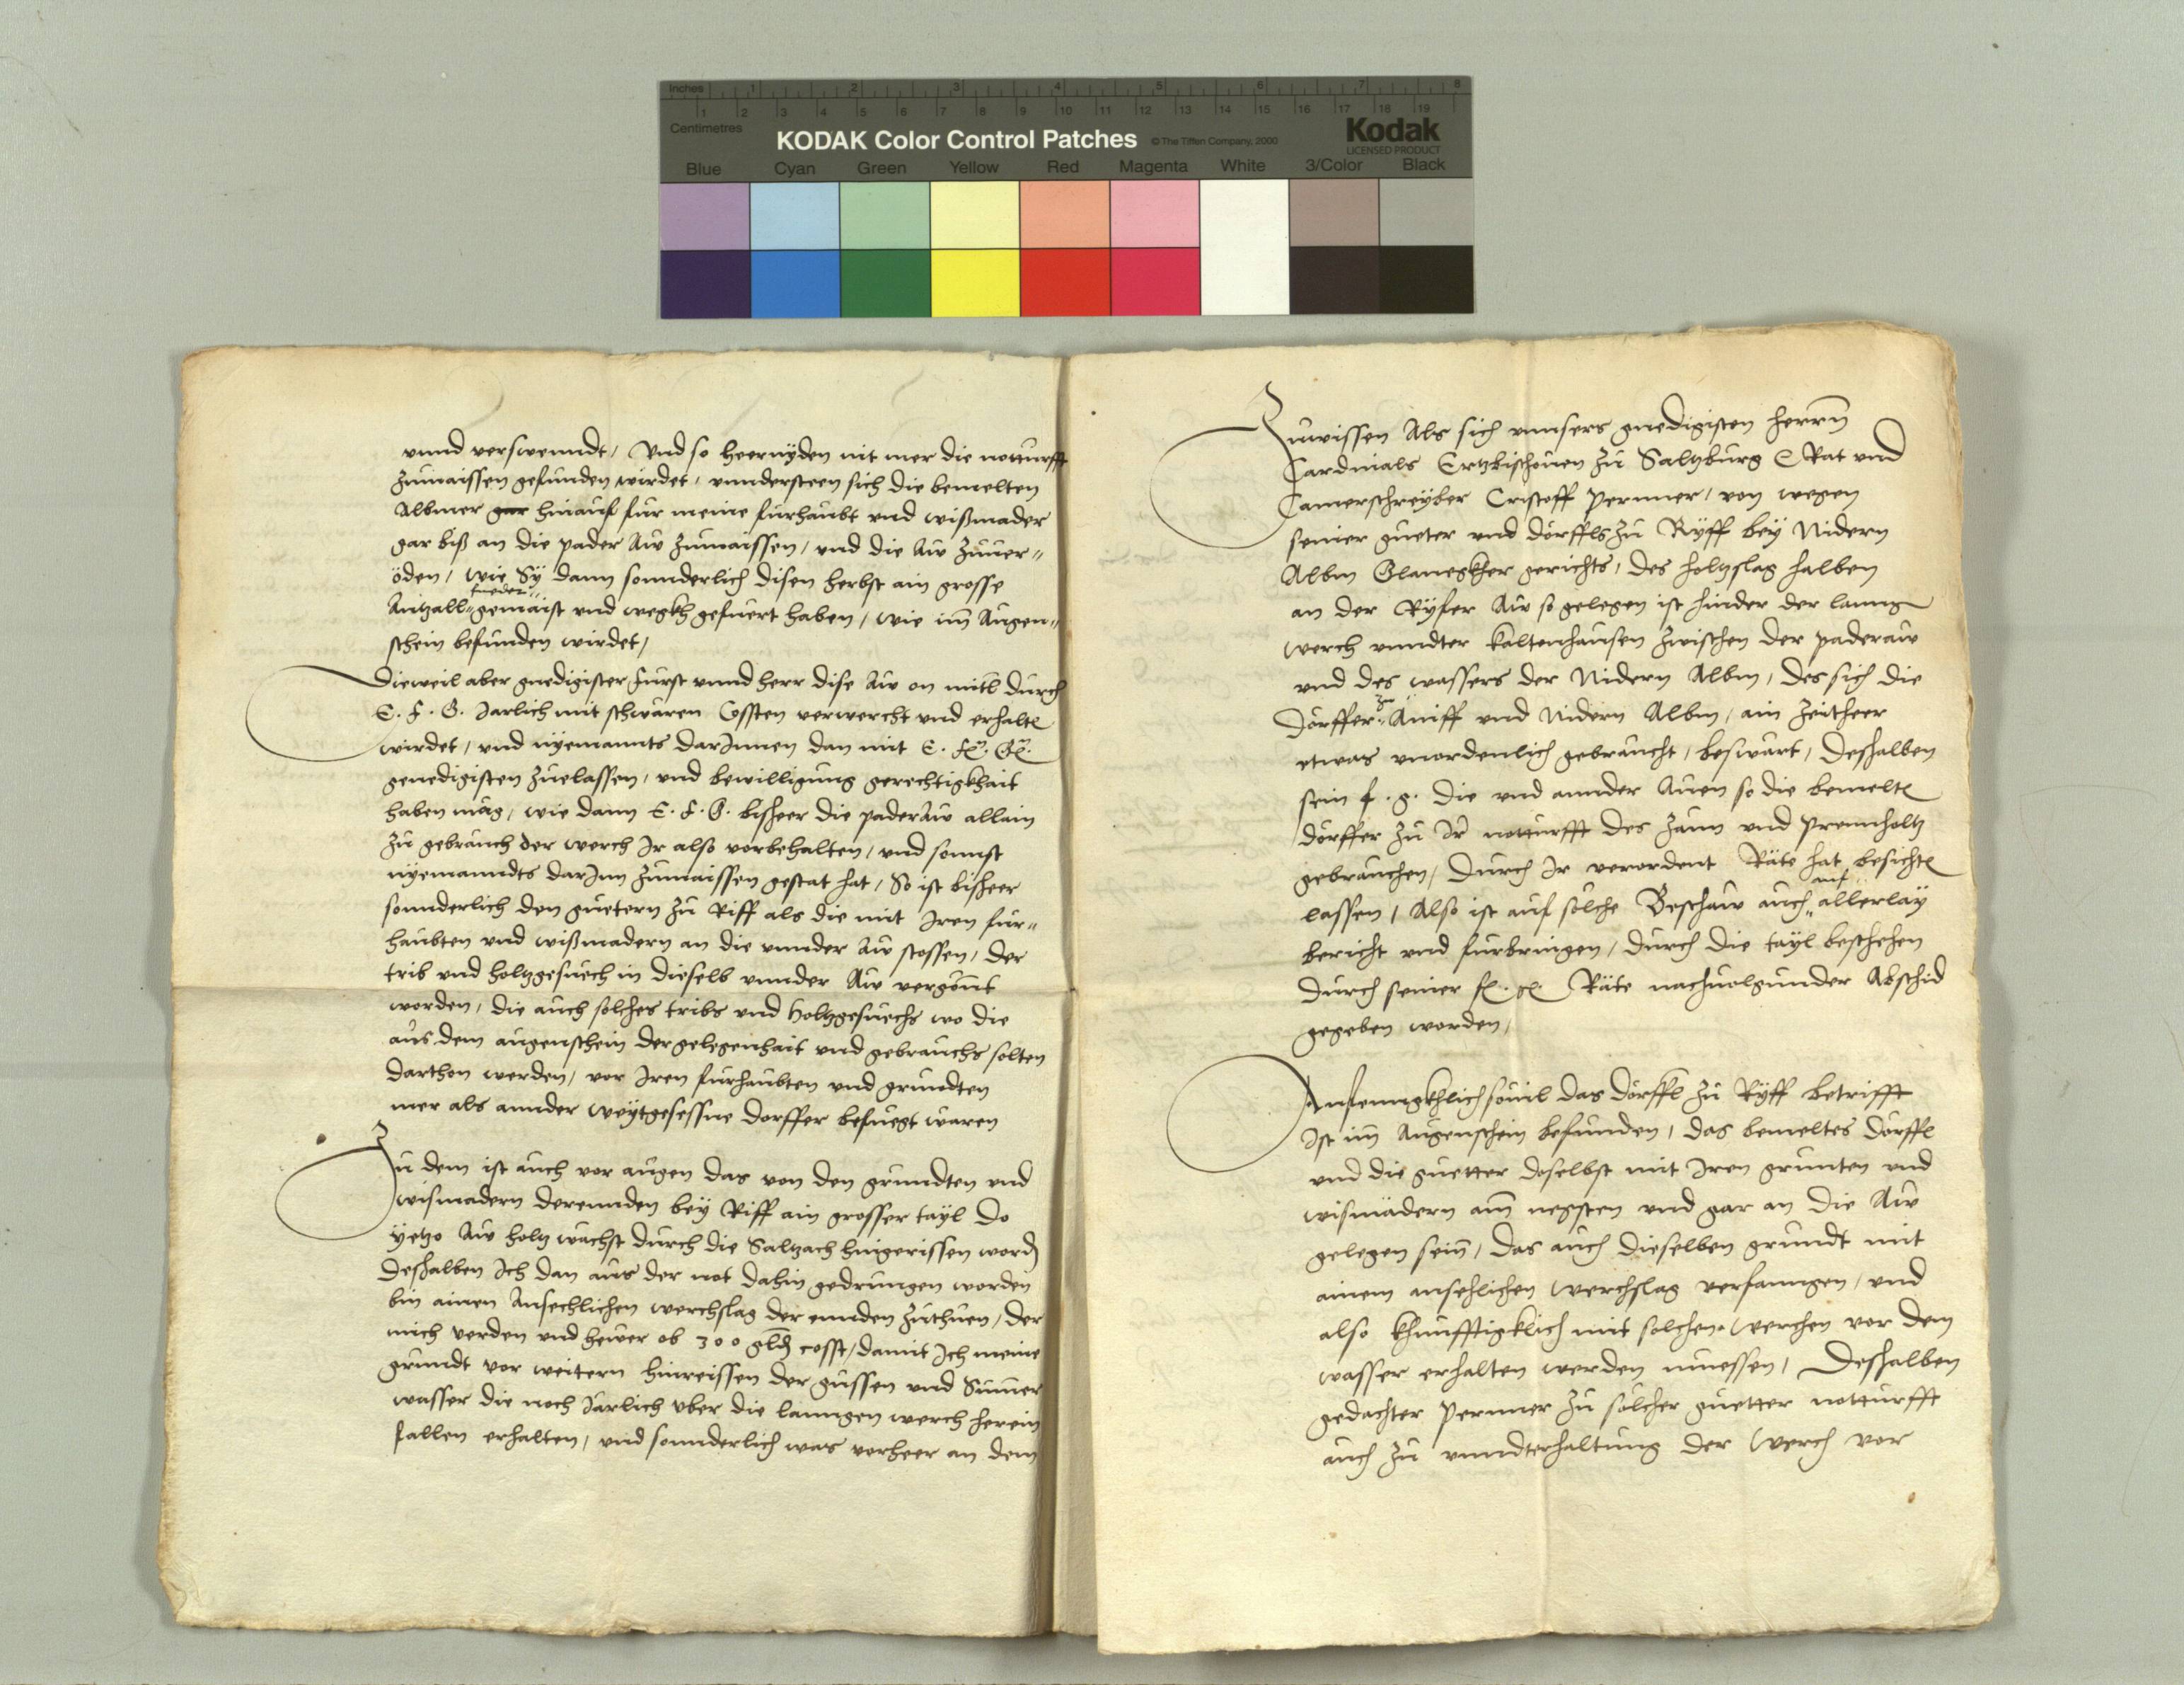 Inches 1 2 3 4 5 6 7 8
1 2 3 4 5 6 7 8 9 10 11 12 13 14 15 16 17 18 19
Centimetres
KODAK Color Control Patches © The Tiffen Company, 2000 Kodak
LICENSED PRODUCT
Blue Cyan Green Yellow Red Magenta White 3/Color Black
vnnd verswenndt, Vnd so heernyden nit mer die notturfft
zumaissen gefunden wirdet, vnndersteen sich die bemelten
Albmer gar hinauf fur meine furhaubt vnd wißmader
gar biß an die pader Aw zumaissen, vnd die Aw zuuer„
öden, wie Sy dann sonnderlich disen herbst ain grosse
fueder
Antzall gemaist vnd wegkh gefuert haben, wie im Augen„
schein befunden wirdet,
Dieweil aber gnedigister Furst vnnd herr dise Aw on mitl durch
E. F. G. Jarlich mit schwaren Cossten verwercht vnd erhalten
wirdet, vnd nyemannts darJnnen dan mit E. Fr. Gn.
genedigisten zuelassen, vnd bewilligung gerechtigkhait
haben mag, wie dann E. F. G. bisheer die paderAw allain
zu gebrauch der werch Jr also vorbehalten, vnd sonnst
nyemanndts darJnn zumaissen gestat hat, So ist bisheer
sonnderlich den guetern zu Riff als die mit Jren fur„
haubten vnd wißmadern an die vnnder Aw stossen, der
trib vnd holtzgesuech in dieselb vnnder Aw vergönnt
worden, die auch solches tribs vnd holtzgesuechs wo die
aus dem augenschein der gelegenhait vnd gebrauchs solten
darthon werden, vor Jren furhaubten vnd grundten
mer als annder weytgesessne dorffer befuegt waren
Zu dem ist auch vor augen das von den grundten vnd
wismadern derennden bey Riff ain grosser tayl do
yetzo Aw holtz wachst durch die Saltzach hingerissen worden
deshalben Ich dan aus der not dahin gedrungen worden
bin ainen Ansechlichen werchslag der ennden zuthuen, der
mich verden vnd hewer ob 300 gld cosst, damit Ich meine
grundt vor weitern hinreissen der gussen vnd Sumer
wasser die noch Jarlich vber die lanngen werch herein
fallen erhalten, vnd sonnderlich was vorheer an dem
Zuwissen Als sich vnnsers gnedigisten herrn
Cardinals Ertzbischouen zu Saltzburg etc Rat vnd
Camerschreyber Cristoff Perner, von wegen
seiner gueter vnd dörffls zu Ryff bey Nidern
Albm Glanegkher gerichts, des holtzslag halben
an der Ryfer Aw so gelegen ist hinder der lanng
werch vnndter kaltenhausen zwischen der paderaw
vnd des wassers der Nidern Albm, des sich die
zu
Dörffer Aniff vnd Nidern Albm, ain Zeitheer
etwas vnordenlich gebraucht, beswart, deshalben
sein f. g. die vnd annder Auen so die bemelten
dörffer zu Jr notturfft des zaun vnd prennholtz
gebrauchen, durch Jr verordent Räte hat besichten
auf
lassen, Also ist auf solche Beschaw auch allerlay
bericht vnd furbringen, durch die tayl beschehen
durch seiner fn. gn. Räte nachuolgunder Abschid
gegeben worden,
Anfenngkhlich souil das dörffl zu Ryff betrifft
Ist im Augenschein befunden, das bemeltes dörffl
vnd die guetter daselbst mit Jren grunten vnd
wismädern am negsten vnd gar an die Aw
gelegen sein, das auch dieselben grundt mit
ainem ansehlichen werchslag verfanngen, vnd
also khunfftigklich mit solchen werchen vor dem
wasser erhalten werden muessen, Deshalben
gedachter Perner zu solcher guetter notturfft
auch zu vnndterhaltung der werch vor